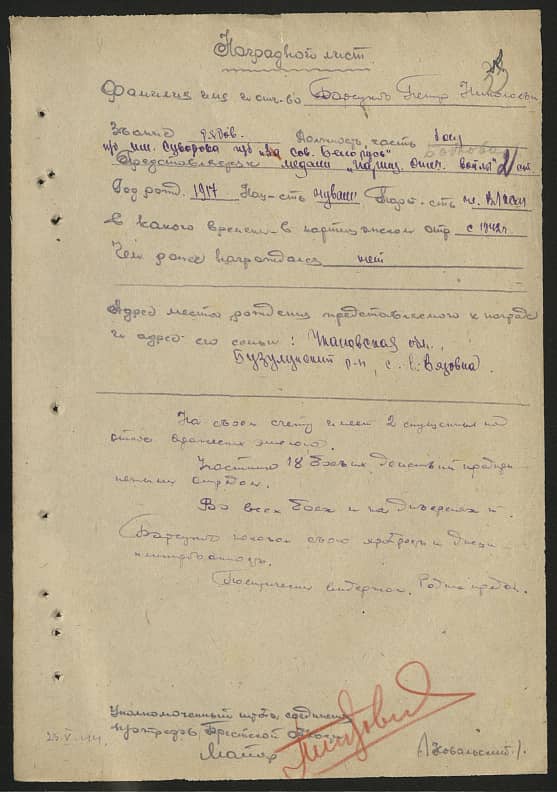 Наградной лист
Фамилия имя и отч-во Барсуков Петр Николаеви
Звание рядов. Должность, часть боец
п/о им. Суворова п/б "За Сов. Белорусь"
Представляется к медали "партиз. отеч. войны" 2 ст.
Год рожд. 1917 Нац-сть чуваш Парт-сть чл. ВЛКСМ
С какого времени в партизанском отр. с 1942г
Чем ранее награждался нет
Адрес места рождения представляемого к награде
и адрес его семьи: обл.,
Бузулукский р-н, с. Вязовка.
На своем счету имеет 2 спущенных под
откос вражеских эшелона.
Участник 18 боевых действий проведен
ных отрядом.
Во всех боях и на диверсиях т.
Барсуков показал свою храбрость и дисци
плинированность.
Политически выдержан. Родине предан.
Уполномоченный штаба соединения
партотрядов Брестской области
Майор
25.V.44